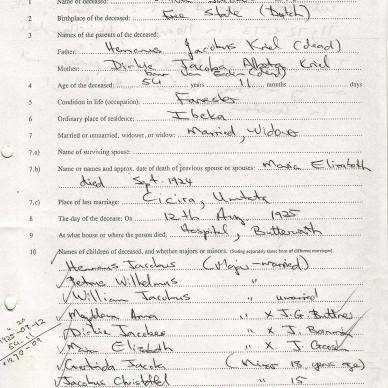 1 Name of deceased:
2 Birthplace of the deceased: Free State (Dutch)
3 Names of the parents of the deceased:
Father: Hermanus Jacobus Kriel (dead)
Mother: Dirkie Jacoba Kriel
born Van Eeden (dead)
4 Age of the deceased: 54 years 11 months days
5 Condition in life (occupation): Farmer
6 Ordinary place of residence: Ibeka
7 Married or unmarried, widower, or widow: Married, Widower
7.a) Name of surviving spouse:
7.b) Name or names and approx. date of death of previous spouse or spouses: Maria Elizabeth
died Sept. 1924
7.c) Place of last marriage: Cicira, Umtata
8 The day of the decease: On 12th Aug 1925
9 At what house or where the person died: Hospital, Butterworth
10 Names of children of deceased, and whether majors or minors.
Hermanus Jacobus (Major - married)
Wilhelmus "
William Jacobus " unmarried
Magdalena Anna " X J.G. Buttner
Dirkie Jacoba " X J.
Elizabeth " X J.
Gertruida Jacoba (Minor 18 years age)
Jacobus Christoffel " 15